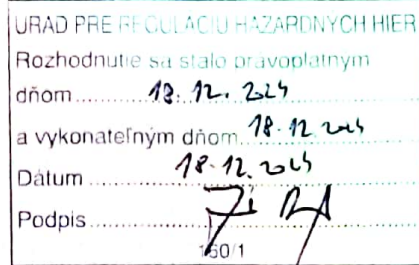 URAD PRE REGULÁCIU HAZARDNÝCH HIER
Rozhodnutie sa stalo právoplatným
dňom 18. 12. 2024
a vykonateľným dňom 18. 12.
Dátum 18. 12.
Podpis
160/1